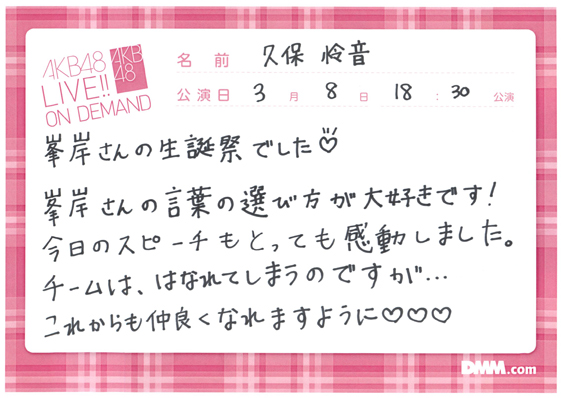 AKB48
LIVE!!
ON DEMAND
AKB
48
名前 久保 怜音
公演日 3月 8日 18:30 公演
峯岸さんの生誕祭でした♡
峯岸さんの言葉の選び方が大好きです!
今日のスピーチもとっても感動しました。
チームは、はなれてしまうのですが…
これからも仲良くなれますように♡♡♡
DMM.com